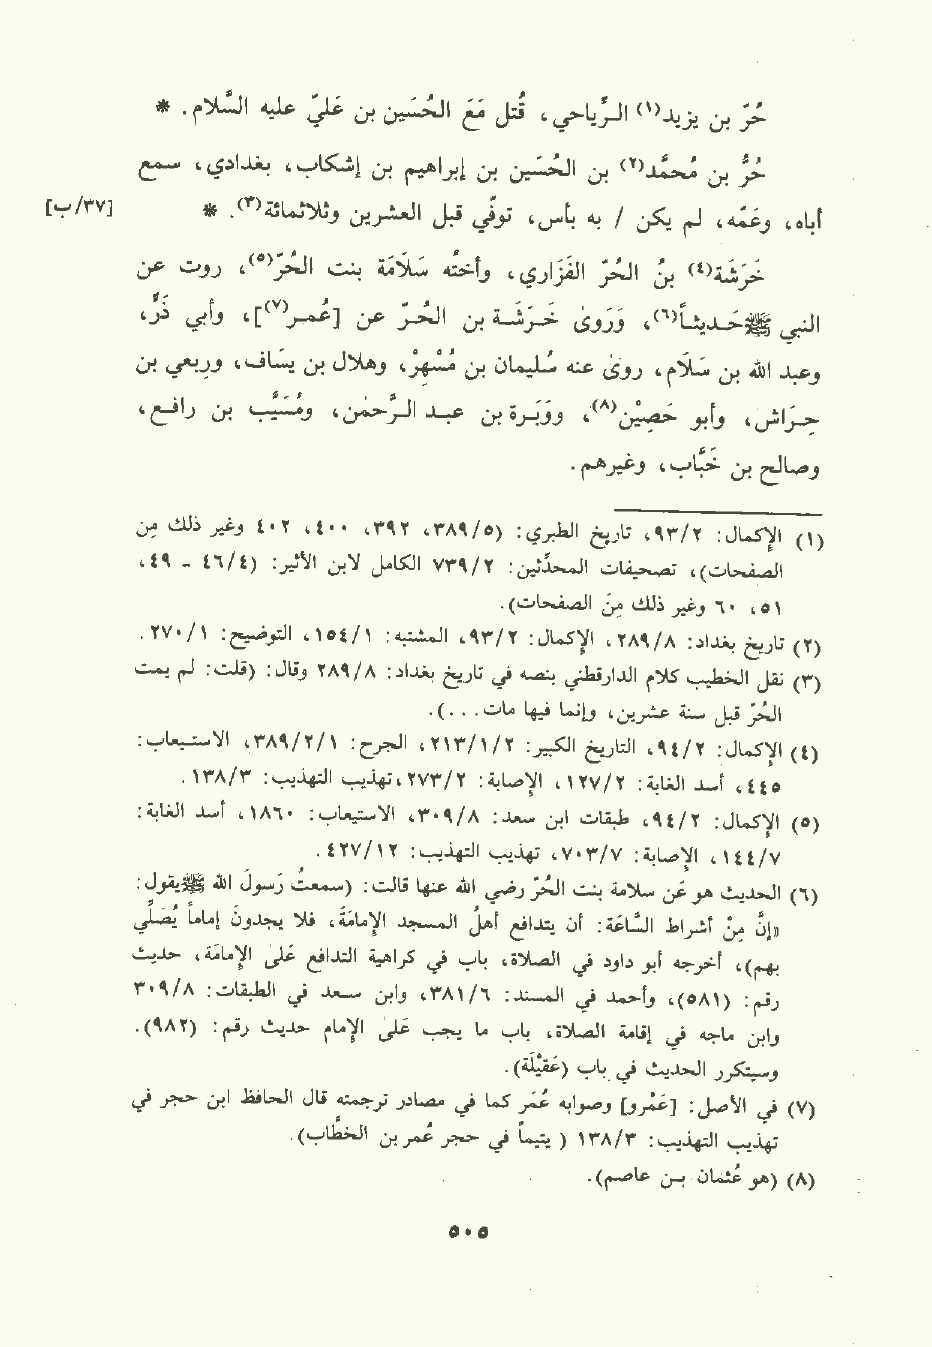 حُرّ بن يزيد(١) الرِّياحي، قُتل مَعَ الحُسَين بن عَليّ عليه السَّلام. *
حُرُّ بن مُحمَّد(٢) بن الحُسَين بن إبراهيم بن إشكاب، بغدادي، سمع
أباه، وعَمّه، لم يكن / به بأس، توفّي قبل العشرين وثلاثمائة(٣). * [٣٧/ب]
خَرَشَة(٤) بنُ الحُرّ الفَزَاري، وأختُه سَلَامَة بنت الحُرّ(٥)، روت عن
النبي ﷺ حَـديثـاً(٦)، وَرَوىٰ خَـرَشَـة بن الحُـرّ عن [عُمـر(٧)]، وأبي ذَرٍّ،
وعبد الله بن سَلَام، روىٰ عنه سُليمان بن مُسْهِرْ، وهلال بن يسَاف، وربعي بن
حِـرَاش، وأبو حَصِيْن(٨)، ووَبَـرة بن عـبد الـرَّحمٰن، ومُسَيَّب بن رافـع،
وصالح بن خَبَّاب، وغيرهم.
(١) الإكمال: ٩٣/٢، تاريخ الطبري: (٣٨٩/٥، ٣٩٢، ٤٠٠، ٤٠٢ وغير ذلك مِن
الصفحات)، تصحيفات المحدِّثين: ٧٣٩/٢ الكامل لابن الأثير: (٤٦/٤ - ٤٩،
٥١، ٦٠ وغير ذلك مِن الصفحات).
(٢) تاريخ بغداد: ٢٨٩/٨، الإكمال: ٩٣/٢، المشتبه: ١٥٤/١، التوضيح: ٢٧٠/١.
(٣) نقل الخطيب كلام الدارقطني بنصه في تاريخ بغداد: ٢٨٩/٨ وقال: (قلت: لم يمت
الحُرّ قبل سنة عشرين، وإنما فيها مات...).
(٤) الإكمال: ٩٤/٢، التاريخ الكبير: ٢١٣/١/٢، الجرح: ٣٨٩/٢/١، الاستيعاب:
٤٤٥، أسد الغابة: ١٢٧/٢، الإصابة: ٢٧٣/٢، تهذيب التهذيب: ١٣٨/٣.
(٥) الإكمال: ٩٤/٢، طبقات ابن سعد: ٣٠٩/٨، الاستيعاب: ١٨٦٠، أسد الغابة:
١٤٤/٧، الإصابة: ٧٠٣/٧، تهذيب التهذيب: ٤٢٧/١٢.
(٦) الحديث هو عَن سلامة بنت الحُرّ رضي الله عنها قالت: (سمعتُ رَسولَ الله ﷺ يقول:
«إنَّ مِنْ أشراط السَّاعَة: أن يتدافع أهلُ المسجد الإمامَة، فلا يجدونَ إماماً يُصَلِّي
بهم)، أخرجه أبو داود في الصلاة، باب في كراهية التدافع عَلىٰ الإمامَة، حديث
رقم: (٥٨١)، وأحمد في المسند: ٣٨١/٦، وابن سعد في الطبقات: ٣٠٩/٨
وابن ماجه في إقامة الصلاة، باب ما يجب عَلىٰ الإمام حديث رقم: (٩٨٢).
وسيتكرر الحديث في باب (عَقِيْلَة).
(٧) في الأصل: [عَمْرو] وصوابه عُمَر كما في مصادر ترجمته قال الحافظ ابن حجر في
تهذيب التهذيب: ١٣٨/٣ ( يتيماً في حجر عُمر بن الخطَّاب).
(٨) (هو عُثمان بـن عاصم).
٥٠٥